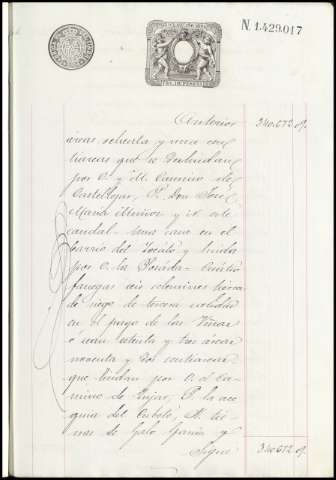 N. 1.429.017
Anterior 340.672 
áreas setenta y una cen
tiáreas que se deslindan
por O. y M. Camino de
Castillejar, P. Don José
María Muñoz y N. este
caudal. Una casa en el
barrio del y linda
por O. la Cuatro
fanegas seis celemines tierra
de riego de tercera calidad
en el pago de las
ó sean setenta y tres áreas
noventa y dos centiáreas
que lindan por O. el Ca
mino de P. la ace
quia del Cubelo, M. tier
ras de Galo García y
Sigue 340.672